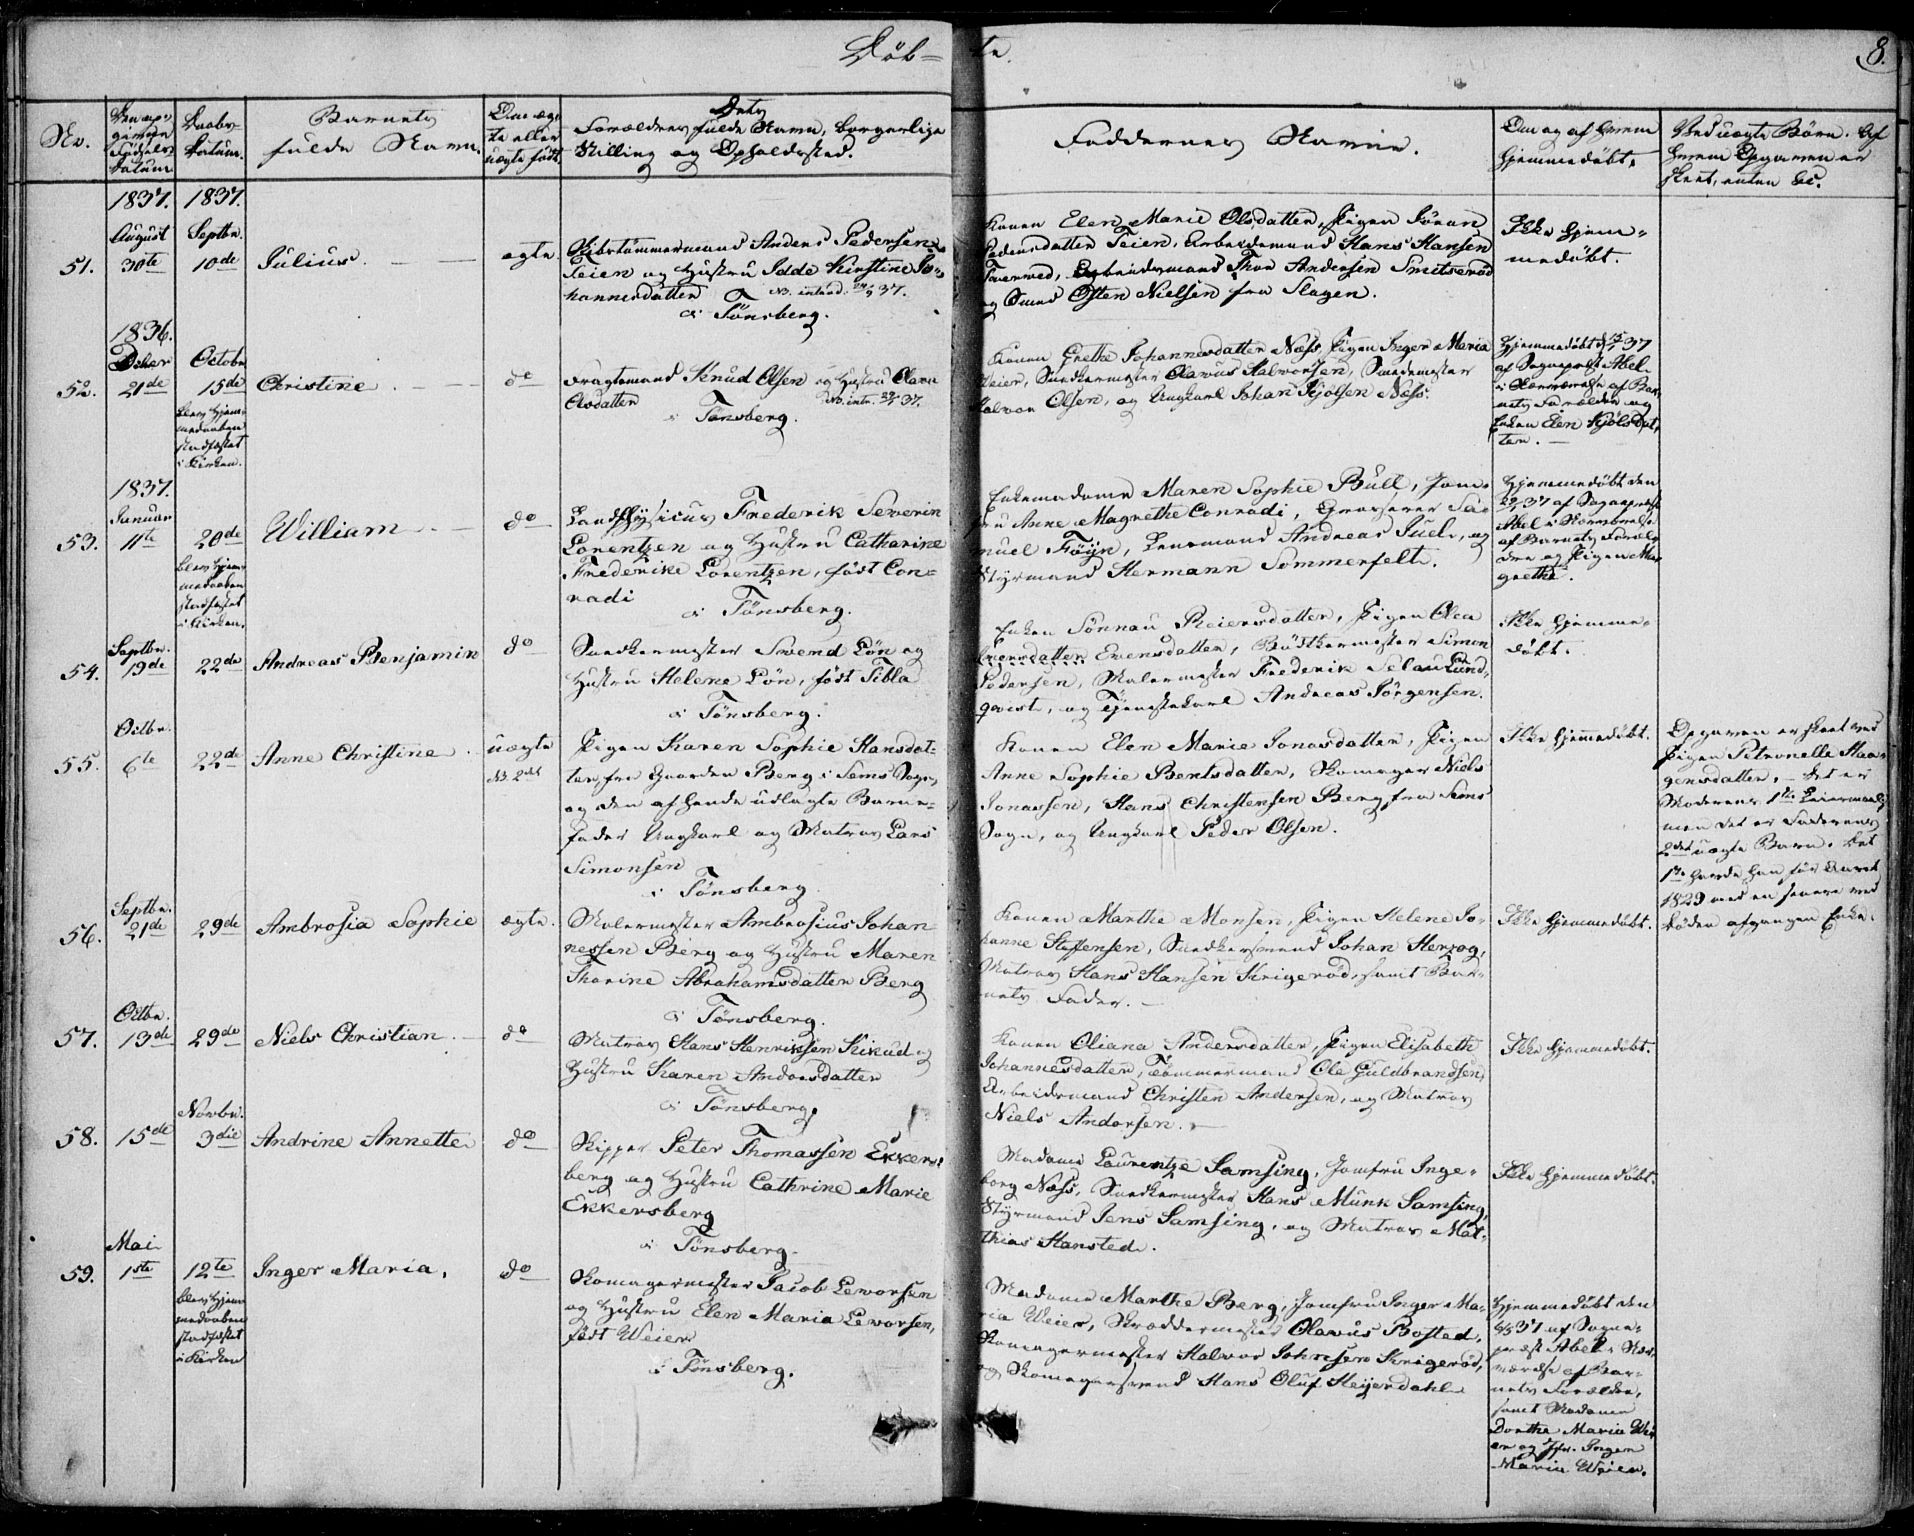 Döb=
te.
8.
No.
Den op=
givne
Födsels
Datum
Daabs=
Datum.
Barnets
fulde Navn.
Om æg=
te eller
uægte født.
Dets
Forældres fulde Navne, borgerlige
Stilling og Opholdssted.
Faddernes Navne.
Om og af hvem
hjemmedøbt.
Ved uægte Børn. Af
hvem Opgaven er
skeet, enten &c.
51.
1837.
August
30te
1837.
Septbr.
10de
Julius.
ægte
Skibstømmermand Anders Pedersen
Teien og Hustru Idde Kirstine Jo=
hannesdatter NB. introd. 24/9 37.
i Tönsberg.
Konen Elen Marie Olsdatter, Pigen Jöran
Pedersdatter Teien, Arbeidsmand Hans Hansen
Arbeidsmand Thor Andersen Smitseröd
og Smed Osten Nielsen fra Slagen.
Ikke hjem=
medøbt.
52.
1836.
Decber
21de
Octobr
15de
blev hjem=
medaaben
stadfæstet
i Kirken.
Christine
do
Fragtemand Knud Olsen og Hustru Olava
Olsdatter NB. intr. 37.
i Tönsberg.
Konen Grethe Johannesdatter Næss, Pigen Inger Maria
Weier, Snedkermester Olavus Halvorsen, Smedemester
Halvor Olsen, og Ungkarl Johan Kjölsen Næss.
Hjemmedøbt 37
af Sognepræst Abel
i Overværelse af Bar=
nets Forældre og
Enken Elen Kjölsdat=
ter.
53.
1837.
Januar
11te
20de
blev hjem=
medaaben
stadfæstet
i Kirken.
William
do
Landphysicus Frederik Severin
Lorentzen og Hustru Catharine
Frederikke Lorentzen, født Con=
radi
i Tönsberg.
Enkemadame Maren Sophie Bull, Jom=
fru Anne Magrethe Conradi, Grosserer Sa=
muel Föyn, Lensmand Andreas Juel, og
Styrmand Hermann Sommerfelt.
Hjemmedøbt den
37 af Sognepræst
Abel i Nærværelse
af Barnets Foræl=
dre og Pigen Mar=
grethe.
54.
Septbr.
19de
22de
Andreas Benjamin
do
Snedkermester Svend Lön og
Hustru Helene Lön, født Tibla
i Tönsberg.
Enken Sönnau Reiersdatter, Pigen Olea
Evensdatter, Bödkermester Simon
Pedersen, Malermester Frederik Lund=
qvist, og Tjenestekarl Andreas Jörgensen.
Ikke hjemme=
døbt.
55.
Octbr.
6te
22de
Anne Christine
uægte
NB. 2det
Pigen Karen Sophie Hansdat=
ter, fra Gaarden Berg i Sems Sogn,
og den af hende udlagte Barne=
fader Ungkarl og Matros Lars
Simonsen
i Tönsberg
Konen Elen Marie Jonasdatter, Pigen
Anne Sophie Bentsdatter, Skomager Niels
Jonassen, Hans Christensen Berg fra Sems
Sogn, og Ungkarl Peder Olsen.
Ikke hjemmedøbt.
Opgaven er skeet ved
Pigen Petronelle Haa=
gensdatter. – Det er
Moderens 1ste Leiermaal,
men det er Faderens
2det uægte Barn. Det
1ste havde han før Aaret
1829 med en senere ved
Døden afgangen Enke.
56.
Septbr.
21de
29de
Ambrosia Sophie
ægte.
Malermester Ambrosius Johan=
nessen Berg og Hustru Maren
Thorine Abrahamsdatter Berg
i Tönsberg.
Konen Marthe Monsen, Pigen Helene Jo=
hanne Steffensen, Snedkersvend Johan Herzog,
Matros Hans Hansen Krigeröd, samt Bar=
nets Fader.
Ikke hjemmedøbt.
57.
Octbr.
13de
29de
Niels Christian
do
Matros Hans Henriksen Kikud og
Hustru Karen Andorsdatter
i Tönsberg.
Konen Oliana Andersdatter, Pigen Elisabeth
Johannesdatter, Tömmermand Ole Guldbrandsen,
Arbeidsmand Christen Andersen, og Matros
Niels Andorsen.
Ikke hjemmedøbt.
58.
15de
Novbr.
3die
Andrine Annette
do
Skipper Peter Thomassen Ekkers=
berg og Hustru Cathrine Marie
Ekkersberg
i Tönsberg
Madame Laurentze Samsing, Jomfru Inge=
borg Næss, Snedkermester Hans Munk Samsing,
Styrmand Jens Samsing, og Matros Mat=
thias Hansted.
Ikke hjemmedøbt.
59.
Mai
1ste
12te
blev hjem=
medaaben
stadfæstet
i Kirken
Inger Maria,
do
Skomagermester Jacob Leworsen
og Hustru Elen Maria Leworsen,
født Weier
i Tönsberg.
Madame Marthe Berg, Jomfru Inger Ma=
ria Weier, Skræddermester Olavus Bosted,
Skomagermester Halvor Johnsen Krigeröd,
og Skomagersvend Hans Oluf Heyerdahl
Hjemmedøbt den
37 af Sogne=
præst Abel i Nær=
værelse af Bar=
nets Forældre,
samt Madame
Dorthe Maria Wei=
er og Jfr. Inger
Maria Weier.